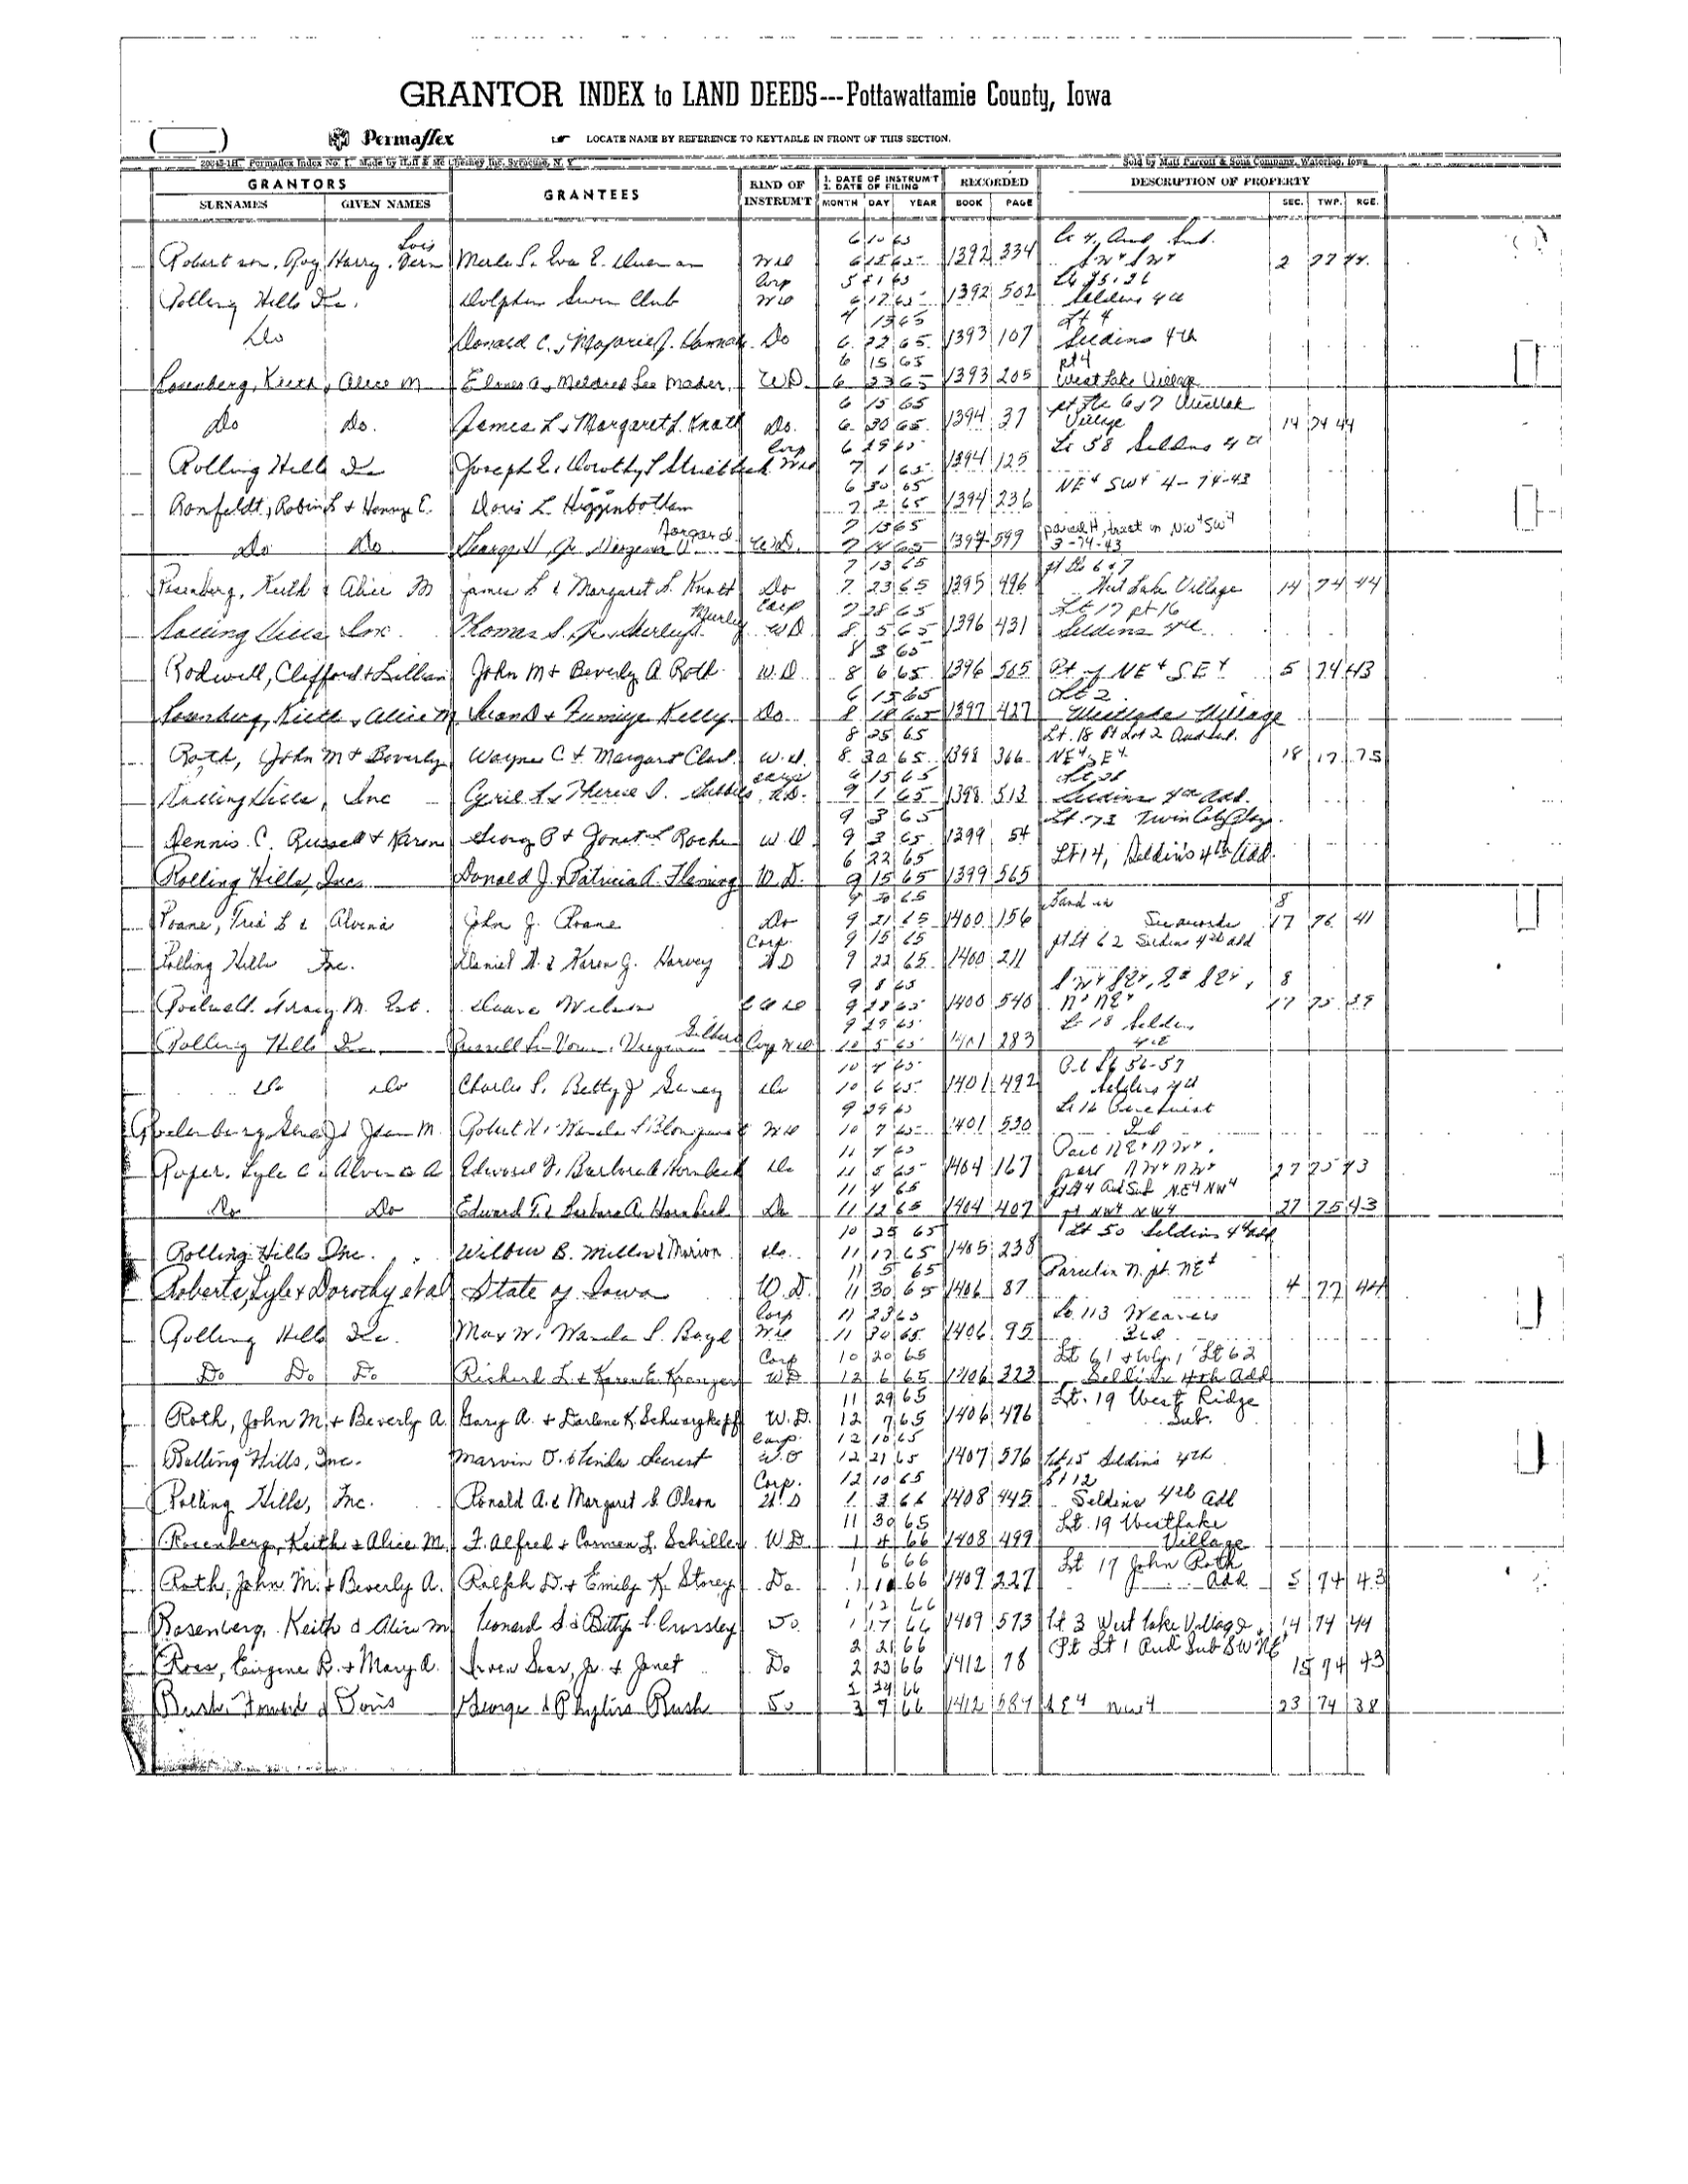 GRANTOR INDEX to LAND DEEDS---Pottawattamie County, Iowa
Permaflex LOCATE NAME BY REFERENCE TO KEYTABLE IN FRONT OF THIS SECTION.
Permaflex Index No. 1. Made by Hall & Mc Chesney Inc. Syracuse, N. Y. Sold by Matt Parrott & Sons Company, Waterloo, Iowa
GRANTORS GRANTEES KIND OF INSTRUM'T 1. DATE OF INSTRUM'T 2. DATE OF FILING RECORDED DESCRIPTION OF PROPERTY
SURNAMES GIVEN NAMES MONTH DAY YEAR BOOK PAGE SEC. TWP. RGE.
Lois 6 10 65
Robertson, Roy, Harry, Vern Merle S. Eva E. WD 6 15 65 1392 334 2 77 44
Corp 5 21 65 Lt 35, 36
Rolling Hills Inc. Dolphin Swim Club WD 6 17 65 1392 502 Seldins 4th
4 15 65 Lt 4
Do Donald C. & Majorie J. Hannah Do 6 22 65 1393 107 Seldins 4th
6 15 65 pt 4
Rosenberg, Keith & Alice M Elmer A & Mildred Lee Mader W.D. 6 23 65 1393 205 West Lake Village
6 15 65 pt Lts 6 & 7 Westlake
Do Do. James L & Margaret L. Knott Do. 6 30 65 1394 37 Village 14 74 44
Corp 6 29 65 Lt 58 Seldins 4th
Rolling Hills Inc Joseph E. Dorothy L WD 7 1 65 1394 125
6 30 65 NE4 SW4 4-74-43
Ronfeldt, Robin L & Honnye E. Doris L. Higginbotham 7 2 65 1394 236
7 13 65 parcel H, tract in NW4 SW4
Do Do George H, Jr. Virginia V. W.D. 7 14 65 1394 599 3-74-43
7 13 65 pt Lts 6 & 7
Rosenberg, Keith & Alice M James L & Margaret L. Knott Do 7 23 65 1395 496 West Lake Village 14 74 44
Corp 7 28 65 Lt 17 pt 16
Rolling Hills Inc. Thomas S. Jr. & Shirley WD 8 5 65 1396 431 Seldins 4th
8 3 65
Rodwell, Clifford & Lillian John M & Beverly A Roth W.D. 8 6 65 1396 565 Pt of NE4 SE4 5 74 43
6 15 65 Lt 2
Rosenberg, Keith & Alice M Sean D & Fumiye Kelly Do 8 18 65 1397 427 Westlake Village
8 25 65 Lt. 18 Pt Lot 2 Aud Sub.
Roth, John M & Beverly Wayne C & Margaret Clark W.D. 8 30 65 1398 366 NE4 SE4 18 17 75
Corp 6 15 65
Rolling Hills, Inc Cyril L & Therese D. W.D. 9 1 65 1398 513 Seldins 4th Add.
9 3 65 Lt. 73 Twin City Play.
Dennis C. Russell & Karen George P & Janet L Roche W.D. 9 3 65 1399 54
6 22 65 Lt 14, Seldin's 4th Add.
Rolling Hills, Inc. Donald J. & Patricia A. Fleming W.D. 9 15 65 1399 565
9 20 65 Land in 8
Roane, Fred L & Alvena John J. Roane Do 9 21 65 1400 156 See records 17 76 41
Corp. 9 15 65 pt Lt 62 Seldins 4th Add
Rolling Hills Inc. Daniel A. & Karen J. Harvey WD 9 22 65 1400 211
9 8 65 8
M. Est. Duane Wilson 9 28 65 1400 540 N2 NE4 17 75 39
9 29 65 Lt 18 Seldin
Rolling Hills Inc. Russell Virginia Gilbert Corp WD 10 5 65 1401 283 4th
10 4 65 Pt Lt 56-57
Do Do Charles S. Betty J Do 10 6 65 1401 492 Seldins 4th
9 29 65 Lt 16
Jean M. Robert H. Wanda WD 10 7 65 1401 530
11 4 65 Part NE4 NW4
Roper, Lyle C. Alvena A Edward T. Barbara A Hornbeck Do 11 5 65 1404 167 part NW4 NW4 27 75 43
11 4 65 pt Lt 4 Aud Sub NE4 NW4
Do Do Edward T. & Barbara A. Hornbeck Do 11 12 65 1404 407 pt NW4 NW4 27 75 43
10 25 65 Lt 50 Seldins 4th Add
Rolling Hills Inc. Wilbur B. Miller & Marion Do. 11 17 65 1405 238
11 5 65 Parcel in N. pt. NE4
Roberts, Lyle & Dorothy et al State of Iowa W.D. 11 30 65 1406 87 4 77 44
Corp 11 23 65 Lt 113 Weavers
Rolling Hills Inc. Max W. Wanda L. Boyd WD 11 30 65 1406 95 3rd
Corp 10 20 65 Lt 61 & Wly 1' Lt 62
Do Do Do Richard L. & Karen E. Kranzer WD 12 6 65 1406 323 Seldins 4th Add
11 29 65 Lt. 19 West Ridge
Roth, John M. & Beverly A. Gary A. & Darlene K. Schwarzkopf W.D. 12 7 65 1406 476 Sub.
Corp. 12 10 65
Rolling Hills, Inc. Marvin O. & Linda Secrest W.D 12 21 65 1407 576 Lt 15 Seldins 4th
Corp. 12 10 65 Lt 12
Rolling Hills, Inc. Ronald A. & Margaret G. Olson W.D 1 3 66 1408 445 Seldins 4th Add
11 30 65 Lt. 19 Westlake
Rosenberg, Keith & Alice M. F. Alfred & Carmen L. Schiller W.D. 1 4 66 1408 499 Village
1 6 66 Lt 17 John Roth
Roth, John M. & Beverly A. Ralph D. & Emily K. Storey Do. 1 10 66 1409 227 Add 5 74 43
1 12 66
Rosenberg, Keith & Alice M Leonard S. & Betty L. Crossley Do. 1 17 66 1409 573 Lt 3 West Lake Village 14 74 44
2 21 66 Pt Lt 1 Aud Sub SW NE4
Ross, Eugene R. & Mary A. Irven Sear, Jr. & Janet Do 2 23 66 1412 78 15 74 43
2 24 66
Rush, Howard & Doris George & Phyliss Rush Do 3 7 66 1412 584 SE4 NW4 23 74 38